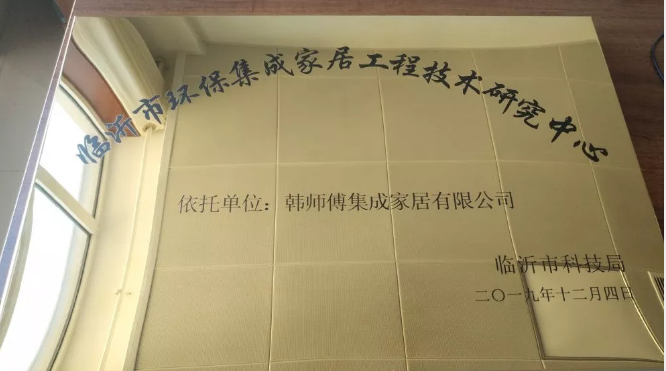 临沂市环保集成家居工程技术研究中心
依托单位：韩师傅集成家居有限公司
临沂市科技局
二〇一九年十二月四日